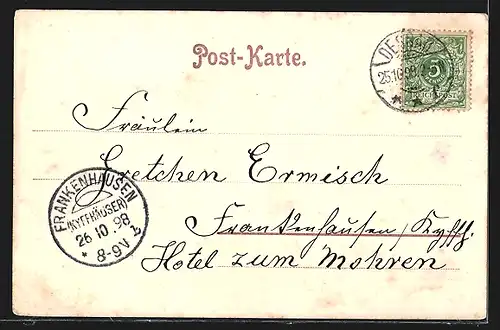 Post-Karte.
DESSAU
25.10.98
5
REICHSPOST
Fräulein
Gretchen Ermisch
Frankenhausen/Kyffh.
Hotel zum Mohren
FRANKENHAUSEN
(KYFFHÄUSER)
26 10 98
* 8-9V